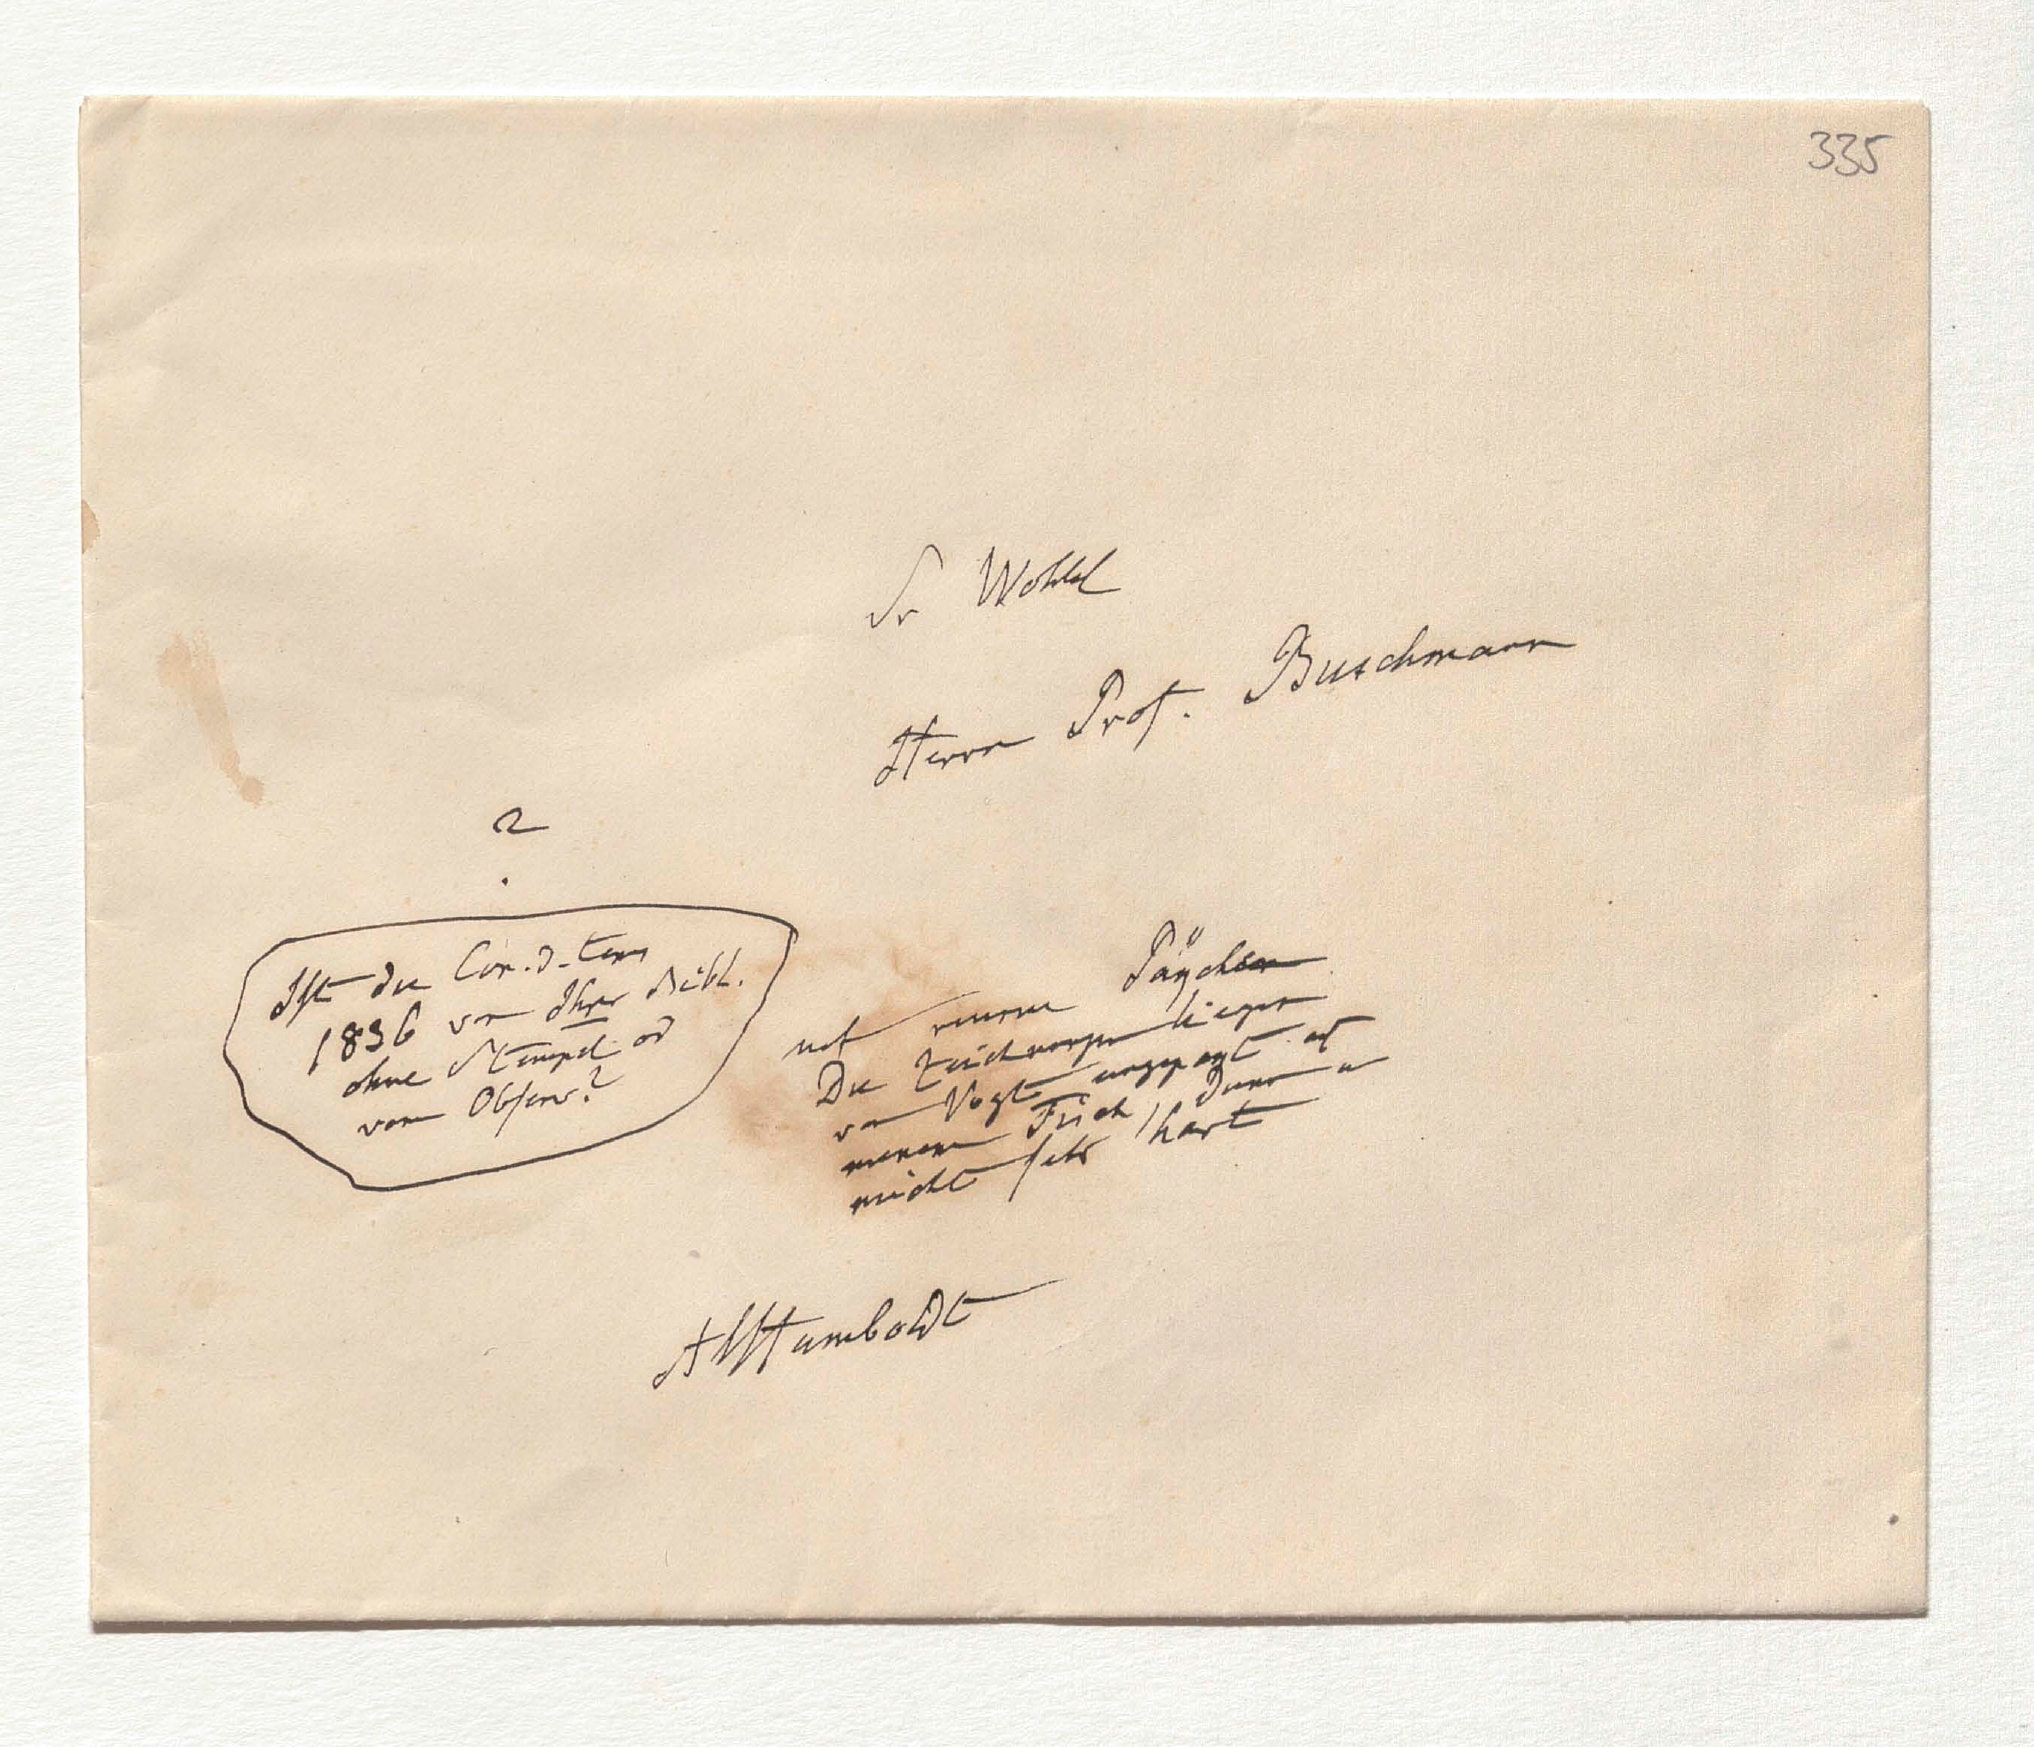 335
Sr Wohl
Herrn Prof. Buschmann
?
Ist die Con. d. tems
1836 von Ihrer Bibl.
ohne Stempel od
vom Observ.?
mit einem Päckchen
Die Zeichnungen liegen
von Vogt angezeigt auf
meinem Tisch,
nicht sehr hart
AlHumboldt